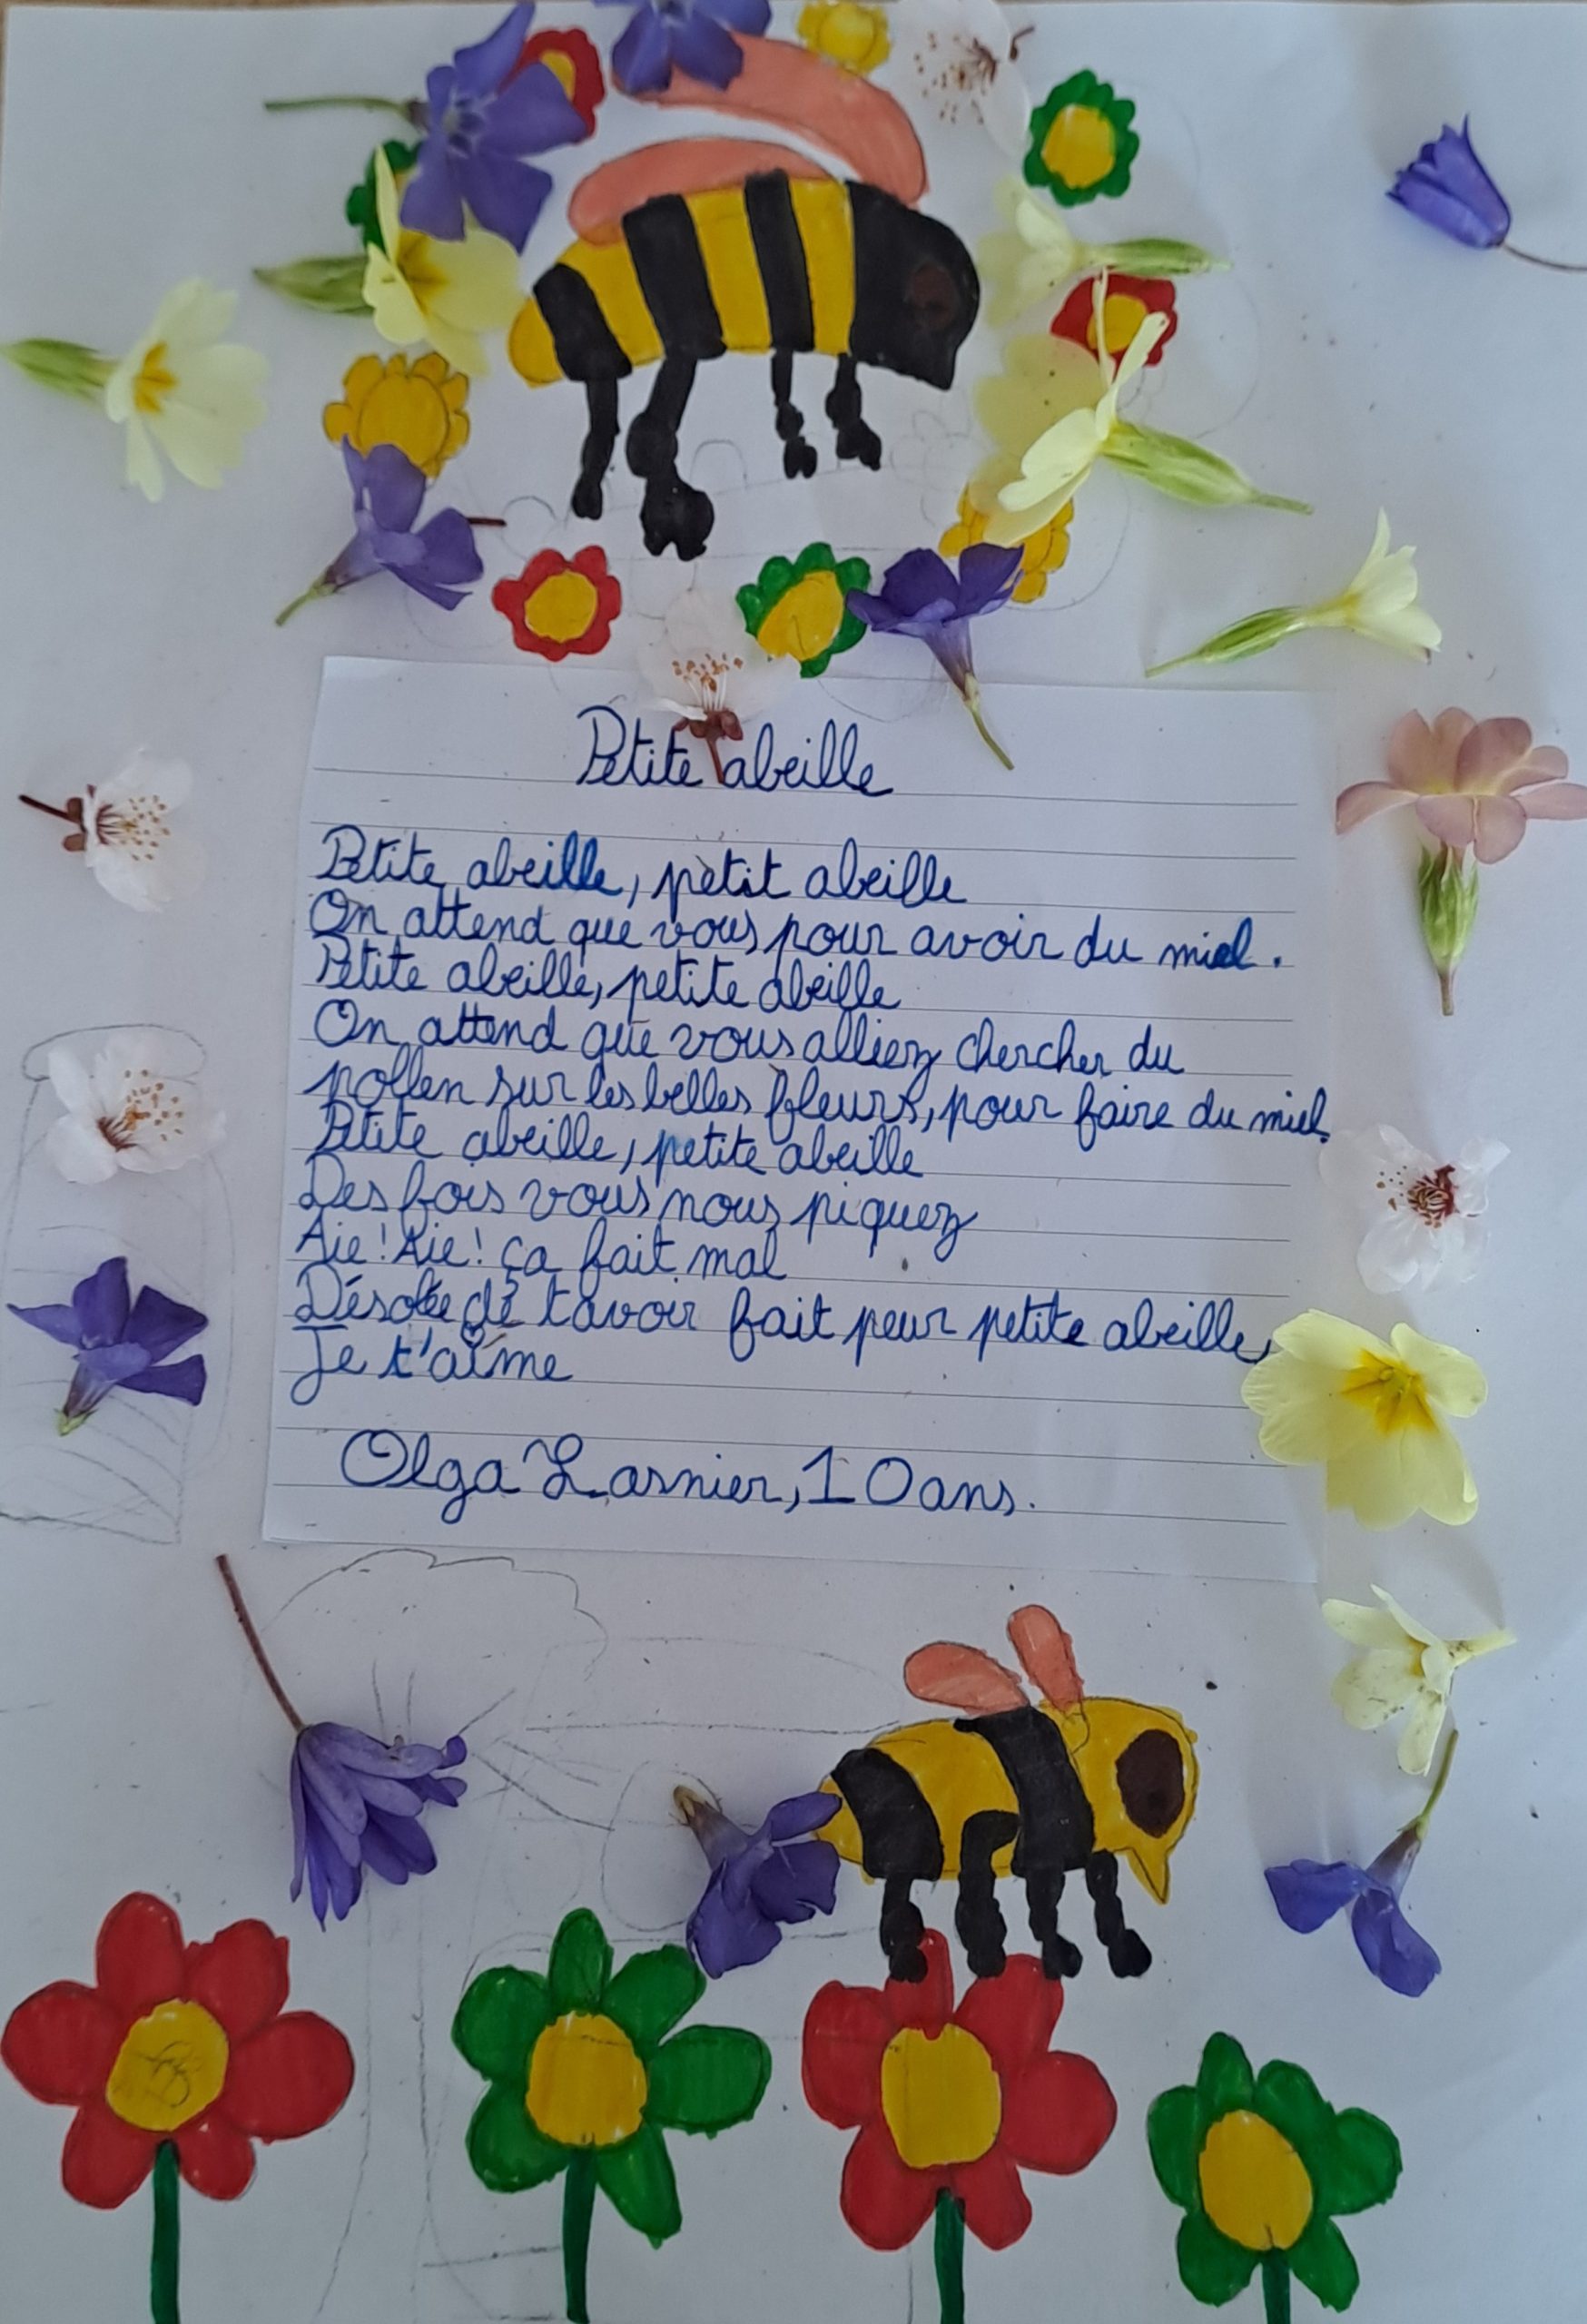 Petite abeille
Petite abeille, petit abeille
On attend que vous pour avoir du miel.
Petite abeille, petite abeille
On attend que vous alliez chercher du
pollen sur les belles fleurs, pour faire du miel.
Petite abeille, petite abeille
Des fois vous nous piquez
Aie! Aie! ça fait mal
Désolée de t'avoir fait peur petite abeille,
Je t'aime
Olga Lasnier, 10 ans.